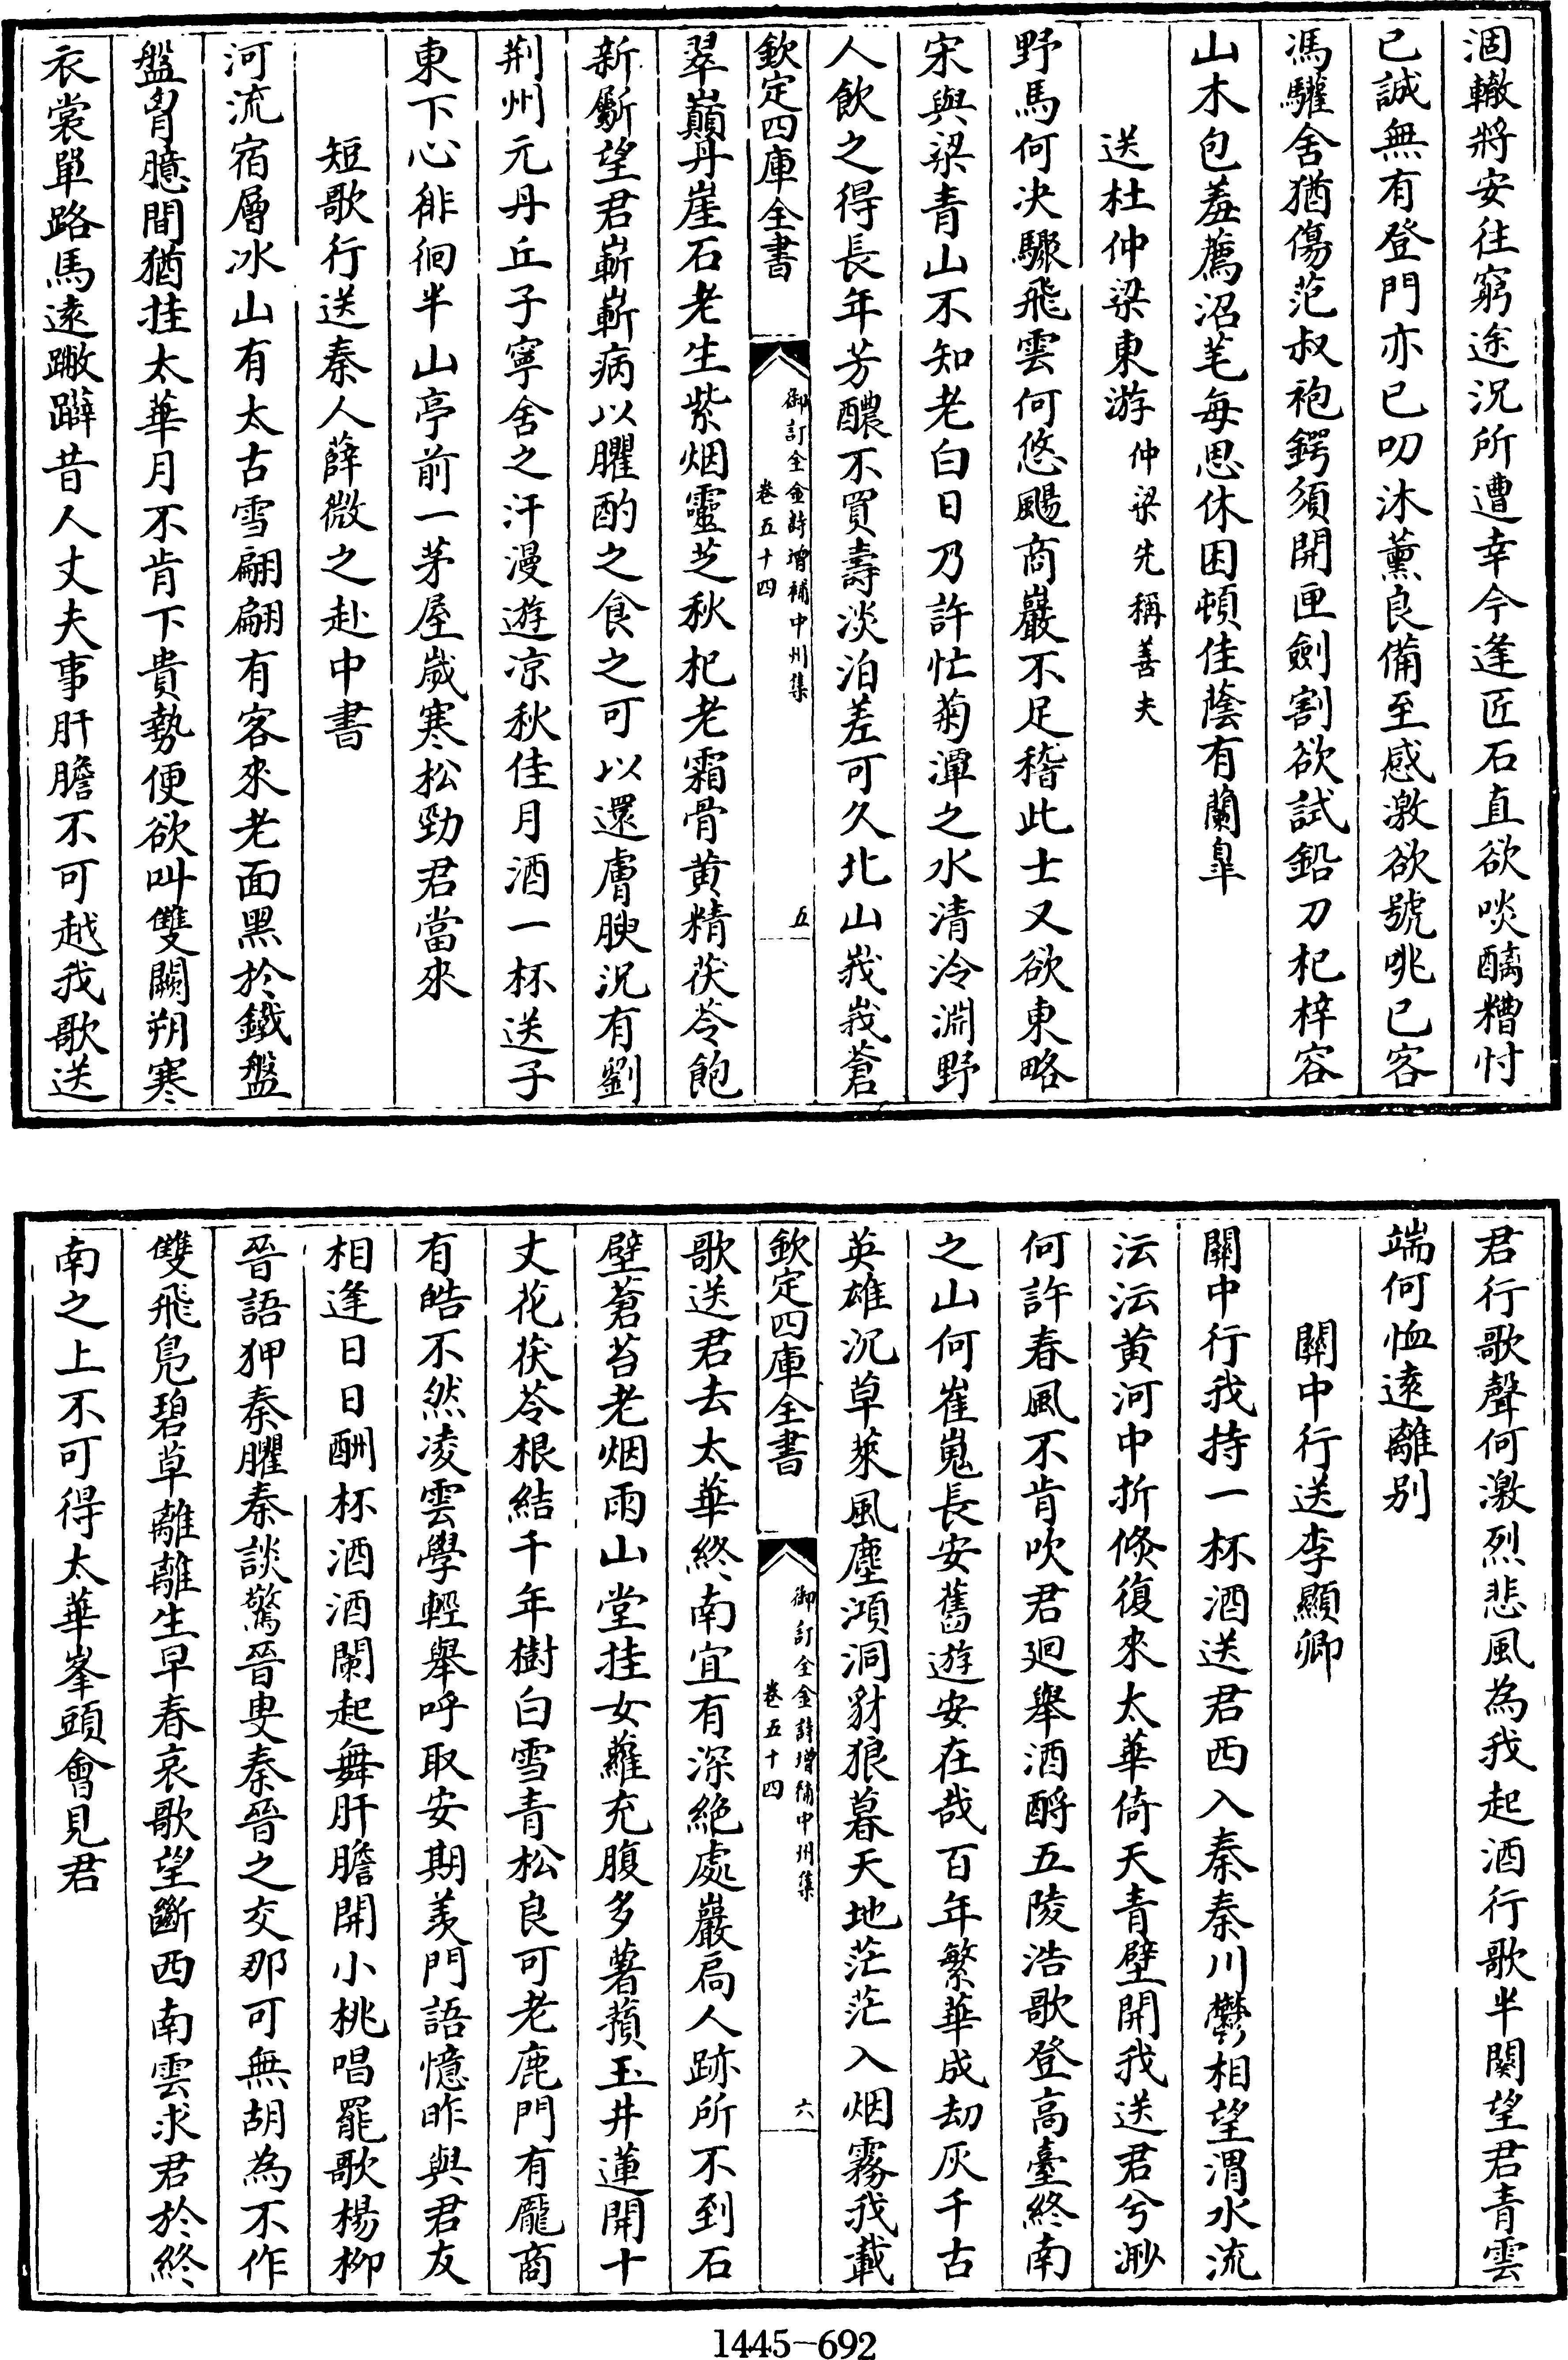 涸轍將安往窮途況所遭幸今逢匠石直欲啖醨糟忖
已誠無有登門亦已叨沐薰良備至感激欲號咷已客
馮驩舍猶傷范叔袍鍔須開匣劍割欲試鉛刀杞梓容
山木包羞薦沼芼每思休困頓佳蔭有蘭臯
送杜仲梁東游仲梁先稱善夫
野馬何决驟飛雲何悠颺商巖不足稽此士又欲東略
宋與梁青山不知老白日乃許忙菊潭之水清泠淵野
人飲之得長年芳醲不買壽淡泊差可久北山峩峩蒼
欽定四庫全書
御訂全金詩增補中州集
卷五十四
五
翠巔丹崖石老生紫烟靈芝秋杞老霜骨黄精茯苓飽
新斸望君嶄嶄病以臞酌之食之可以還膚腴況有劉
荆州元丹丘子寧舍之汗漫遊凉秋佳月酒一杯送子
東下心徘徊半山亭前一茅屋嵗寒松勁君當來
短歌行送秦人薛微之赴中書
河流宿層冰山有太古雪翩翩有客來老面黑於鐵盤
盤胷臆間猶挂太華月不肯下貴勢便欲叫雙闕朔寒
衣裳單路馬遠蹩躃昔人丈夫事肝膽不可越我歌送
君行歌聲何激烈悲風為我起酒行歌半闋望君青雲
端何恤遠離别
關中行送李顯卿
關中行我持一杯酒送君西入秦秦川鬱相望渭水流
沄沄黄河中折倏復來太華倚天青壁開我送君兮渺
何許春風不肯吹君廻舉酒酹五陵浩歌登高臺終南
之山何崔嵬長安舊遊安在哉百年繁華成刧灰千古
英雄沉草萊風塵澒洞豺狼暮天地茫茫入烟霧我載
欽定四庫全書
御訂全金詩增補中州集
卷五十四
六
歌送君去太華終南宜有深絶處巖扃人跡所不到石
壁蒼苔老烟雨山堂挂女蘿充腹多薯蕷玉井蓮開十
丈花茯苓根結千年樹白雪青松良可老鹿門有龎商
有皓不然凌雲學輕舉呼取安期羡門語憶昨與君友
相逢日日酬杯酒酒闌起舞肝膽開小桃唱罷歌楊柳
晉語狎秦臞秦談驚晉叟秦晉之交那可無胡為不作
雙飛鳬碧草離離生早春哀歌望斷西南雲求君於終
南之上不可得太華峯頭會見君
1445-692